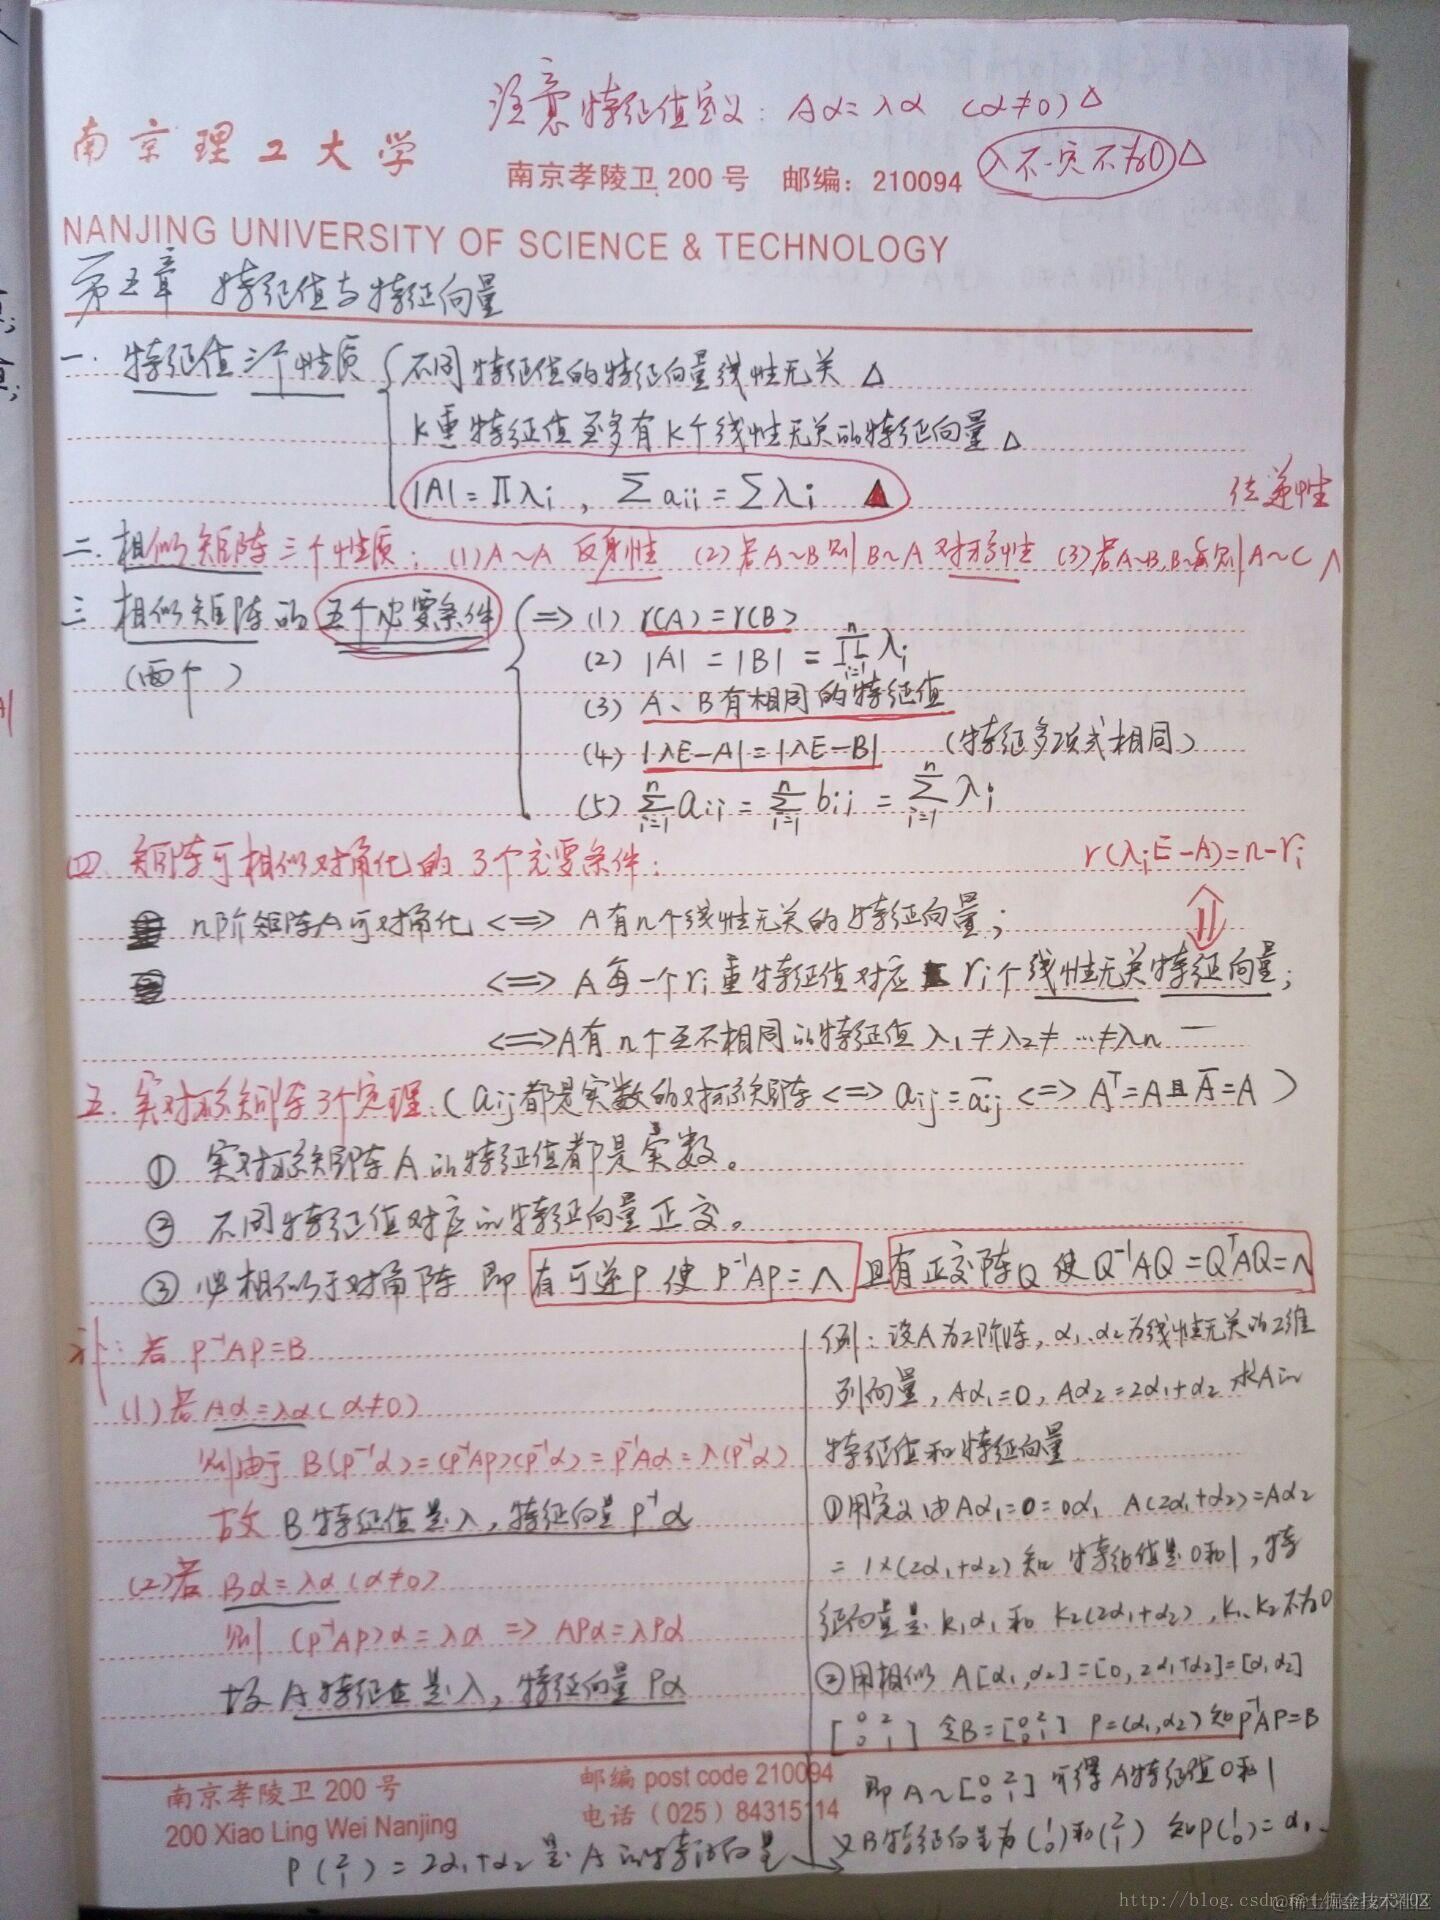 注意特征值定义：Aα=λα （α≠0）△
南京理工大学
南京孝陵卫 200 号 邮编：210094
λ不一定不为0 △
NANJING UNIVERSITY OF SCIENCE & TECHNOLOGY
第五章 特征值与特征向量
一. 特征值三个性质 { 不同特征值的特征向量线性无关 △
k重特征值至多有k个线性无关的特征向量 △
|A|=∏λi , ∑aii=∑λi ▲
传递性
二. 相似矩阵三个性质：(1) A~A 反身性 (2) 若A~B 则 B~A 对称性 (3) 若A~B, B~C 则 A~C
三 相似矩阵的五个必要条件 { => (1) r(A)=r(B)
(两个)
(2) |A| = |B| = ∏(i=1→n) λi
(3) A、B有相同的特征值
(4) |λE-A|=|λE-B| （特征多项式相同）
(5) ∑(i=1→n) aii = ∑(i=1→n) bii = ∑(i=1→n) λi
四. 矩阵可相似对角化的3个充要条件： r(λiE-A)=n-ri
n阶矩阵A可对角化 <=> A有n个线性无关的特征向量；
<=> A每一个ri重特征值对应ri个线性无关特征向量；
<=> A有n个互不相同的特征值 λ1≠λ2≠…≠λn
五. 实对称矩阵3个定理.（aij都是实数的对称矩阵 <=> aij=āij <=> Aᵀ=A且Ā=A）
① 实对称矩阵A的特征值都是实数。
② 不同特征值对应的特征向量正交。
③ 必相似于对角阵 即 有可逆P使 P⁻¹AP=Λ 且有正交阵Q使Q⁻¹AQ=QᵀAQ=Λ
补：若 P⁻¹AP=B
(1) 若 Aα=λα (α≠0)
则由于 B(P⁻¹α)=(P⁻¹AP)(P⁻¹α)=P⁻¹Aα=λ(P⁻¹α)
故 B特征值是λ，特征向量P⁻¹α
(2) 若 Bα=λα (α≠0)
则 (P⁻¹AP)α=λα => APα=λPα
故 A特征值是λ，特征向量Pα
例：设A为2阶阵，α1、α2为线性无关的2维
列向量，Aα1=0，Aα2=2α1+α2 求A的
特征值和特征向量
①用定义 由Aα1=0=0α1 A(2α1+α2)=Aα2
=1×(2α1+α2) 知 特征值是0和1，特
征向量是 k1α1 和 k2(2α1+α2)，k1、k2不为0
②用相似 A[α1,α2]=[0,2α1+α2]=[α1α2]
[0 2; 0 1] 令B=[0 2; 0 1] P=(α1,α2) 知P⁻¹AP=B
即 A~[0 2; 0 1] 可得 A特征值0和1
又B特征向量为(1 0)和(2 1) 知P(1 0)=α1、
P(2 1)=2α1+α2 是 A的特征向量
南京孝陵卫 200 号
200 Xiao Ling Wei Nanjing
邮编 post code 210094
电话（025）84315114